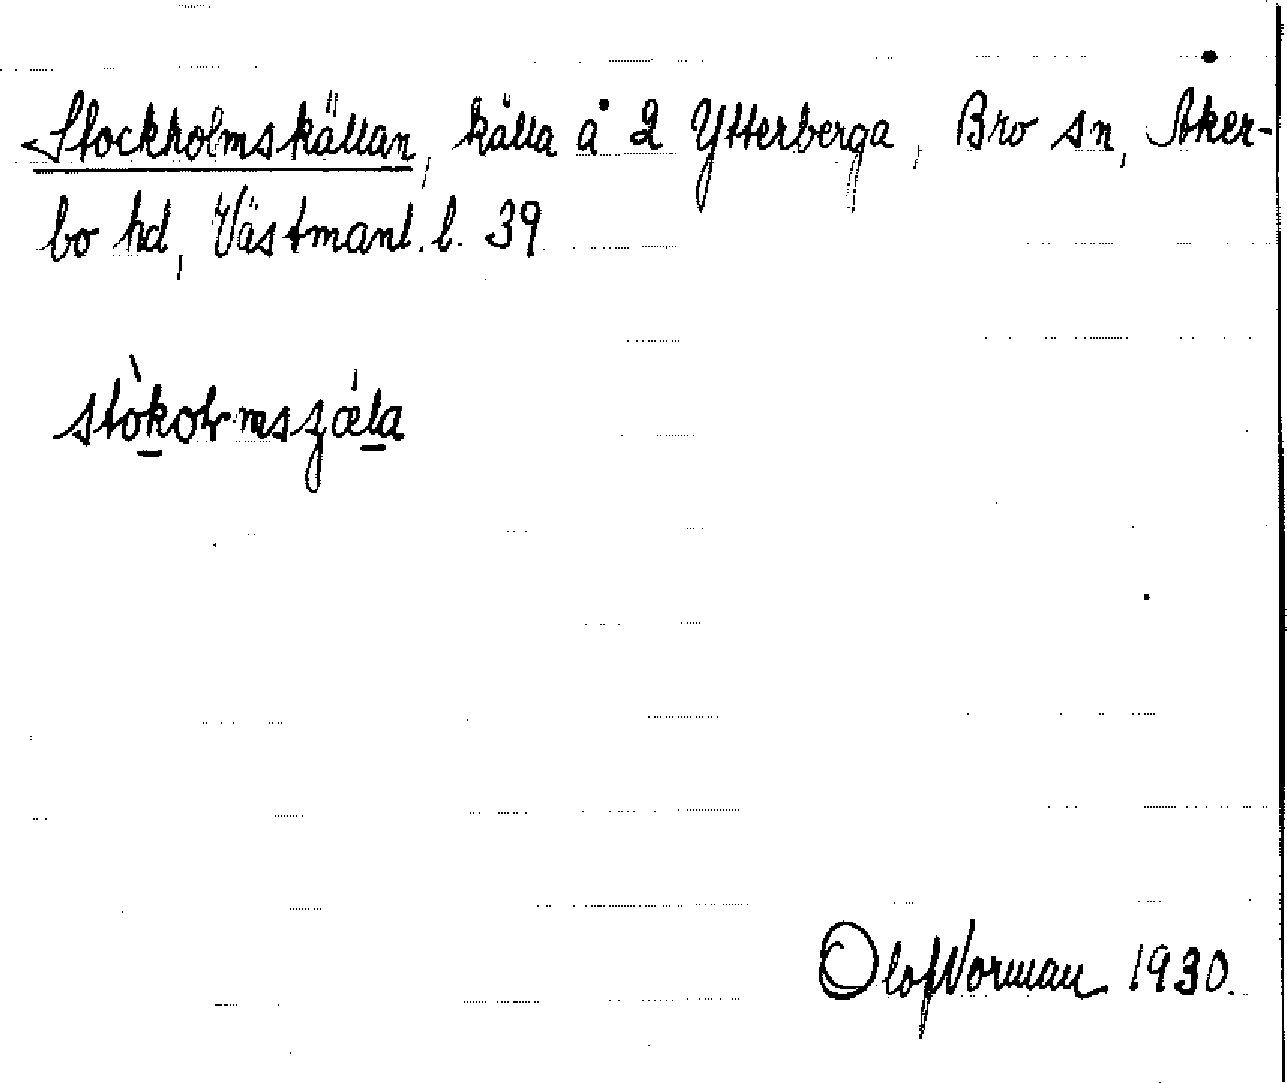 Stockholmskällan, källa å 2 Ytterberga, Bro sn, Åker-
bo hd, Västmanl. l. 39
Olof Norman 1930.